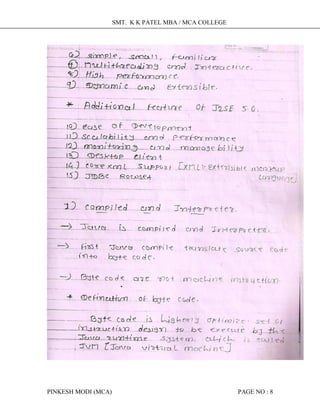 SMT. K K PATEL MBA / MCA COLLEGE
6) simple, small, familiar
7) Multithreading and Interactive.
8) High performance
9) Dynamic and Extensible.
* Additional feature Of J2SE 5.0.
10) ease of Development
11) Scalability and Performance
12) monitoring and manageability
13) Desktop client
14) core xml Support [XML: Extensible
Language]
15) JDBC
1) compiled and Interpreter.
→ Java is compiled and Interpreter.
→ first Java compile translate source code
into byte code.
→ Byte code are not machine instruction.
* Definition of byte code.
Byte code is highly optimize set of
instruction design to be execute by the
Java runtime system which is called
JVM [Java virtual machine]
PINKESH MODI (MCA) PAGE NO : 8